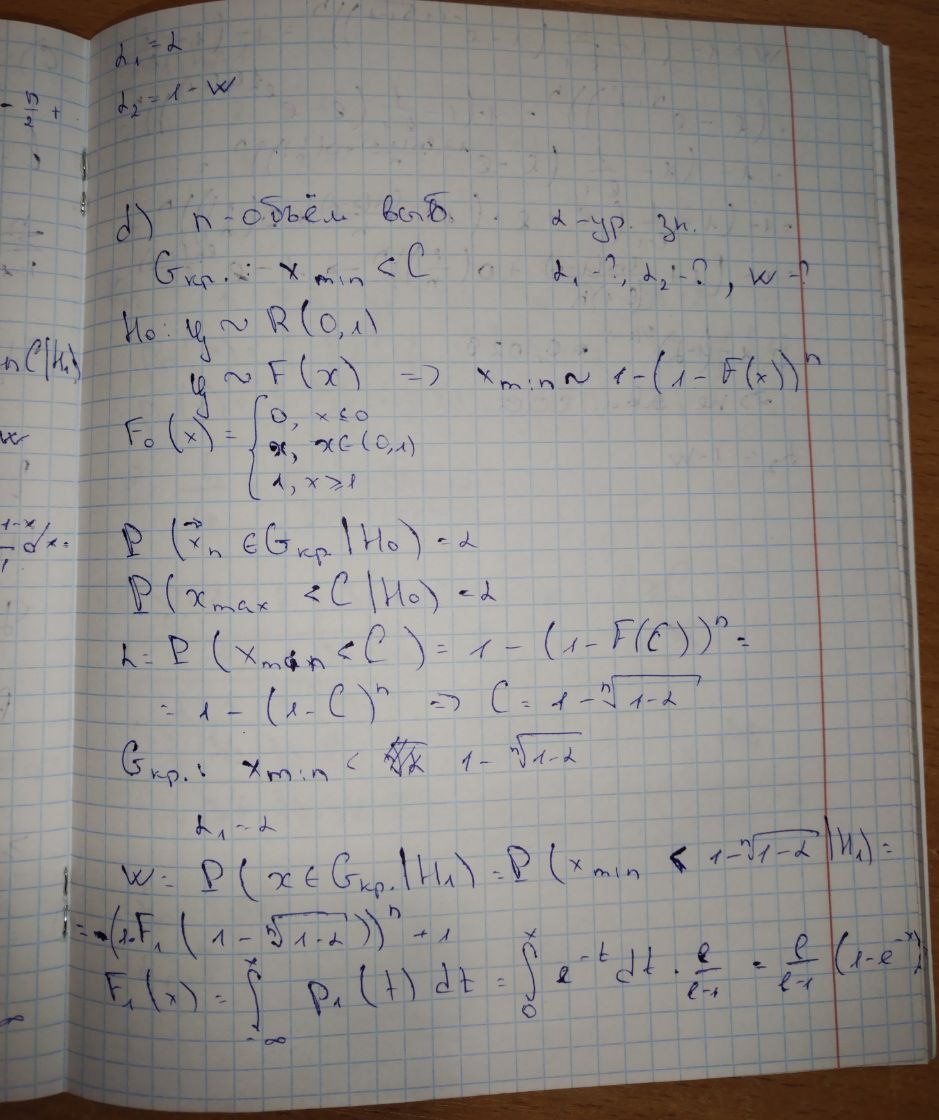 α₁ = α
α₂ = 1 - W
d) n - объём выб. α - ур. зн.
Gкр.: x min < C α₁ - ?, α₂ - ?, W - ?
H₀: ψ ~ R(0,1)
ψ ~ F(x) => x min ~ 1-(1-F(x))ⁿ
F₀(x) = { 0, x ≤ 0
x, x ∈ (0,1)
1, x ≥ 1
P(x⃗ₙ ∈ Gкр | H₀) = α
P(x max < C | H₀) = α
α = P(x min < C) = 1 - (1 - F(C))ⁿ =
= 1 - (1 - C)ⁿ => C = 1 - ⁿ√(1-α)
Gкр.: x min < 1 - ⁿ√(1-α)
α₁ = α
W = P(x ∈ Gкр. | H₁) = P(x min < 1 - ⁿ√(1-α) | H₁) =
= -(1-F₁(1 - ⁿ√(1-α)))ⁿ + 1
F₁(x) = ∫_{-∞}^{x} p₁(t) dt = ∫_{0}^{x} e^{-t} dt · e/(e-1) = e/(e-1) (1-e^{-x})
- 5/2 +
n C|H₁)